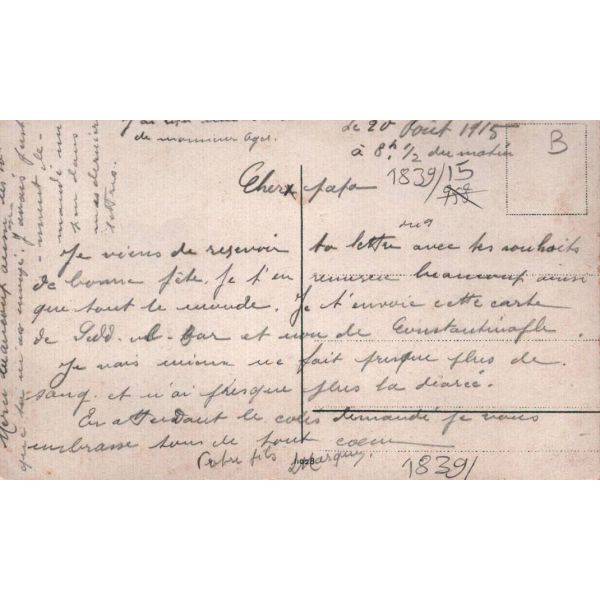 de monsieur Agel.
le 20 Août 1915
à 8h 1/2 du matin
B
1839/15
Cher papa
Je viens de resevoir ta lettre avec tes souhaits
de bonne fête. Je t'en remercie beaucoup ainsi
que tout le monde. Je t'envoie cette carte
de Sedd-ul-Bar et non de Constantinople.
Je vais mieux ne fait presque plus de
sang et n'ai presque plus la diarée.
En attendant le colis demandé je vous
embrasse tous de tout coeur
Votre fils
1928
1839/
Merci beaucoup aussi
que tu m'as envoyé. J'avais
mandé un
sur dans
mas dernière
lettres.